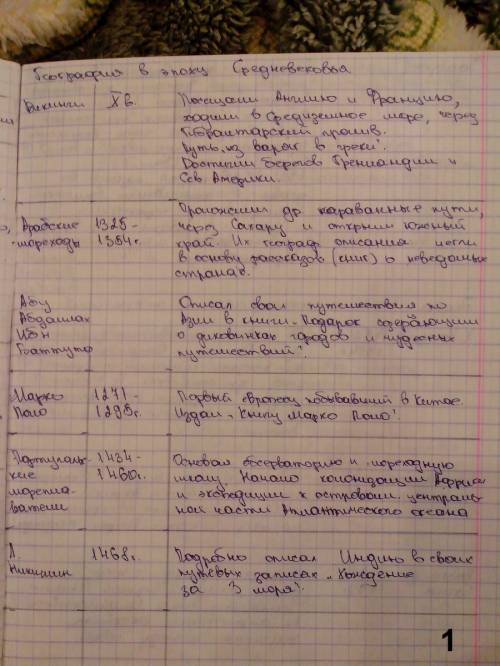 География в эпоху Средневековья
Викинги Xв. Посещали Англию и Францию,
ходили в Средиземное море, через
Гибралтарский пролив.
Путь „из варяг в греки".
Достигли берегов Гренландии и
Сев. Америки.
Арабские 1325- Проложили др. караванные пути,
мореходы 1354г. через Сахару и открыли южный
край. Их географ описания легли
в основу рассказов (книг) о неведомых
странах.
Абу Описал свои путешествия по
Абдаллах Азии в книги „Подарок содержающий
Ибн о диковинках городов и чудесных
Баттута путешествий".
Марко 1271- Первый европеец побывавший в Китае.
Поло 1295г. Издал „Книгу Марко Поло".
Португаль- 1434- Основал обсерваторию и мореходную
ские 1460г. школу. Начало колонизации Африки
морепла- и экспедиции к островам централь-
ватели ной части Атлантического океана
А. 1468г. Подробно описал Индию в своих
Никитин путевых записках „Хождение
за 3 моря".
1